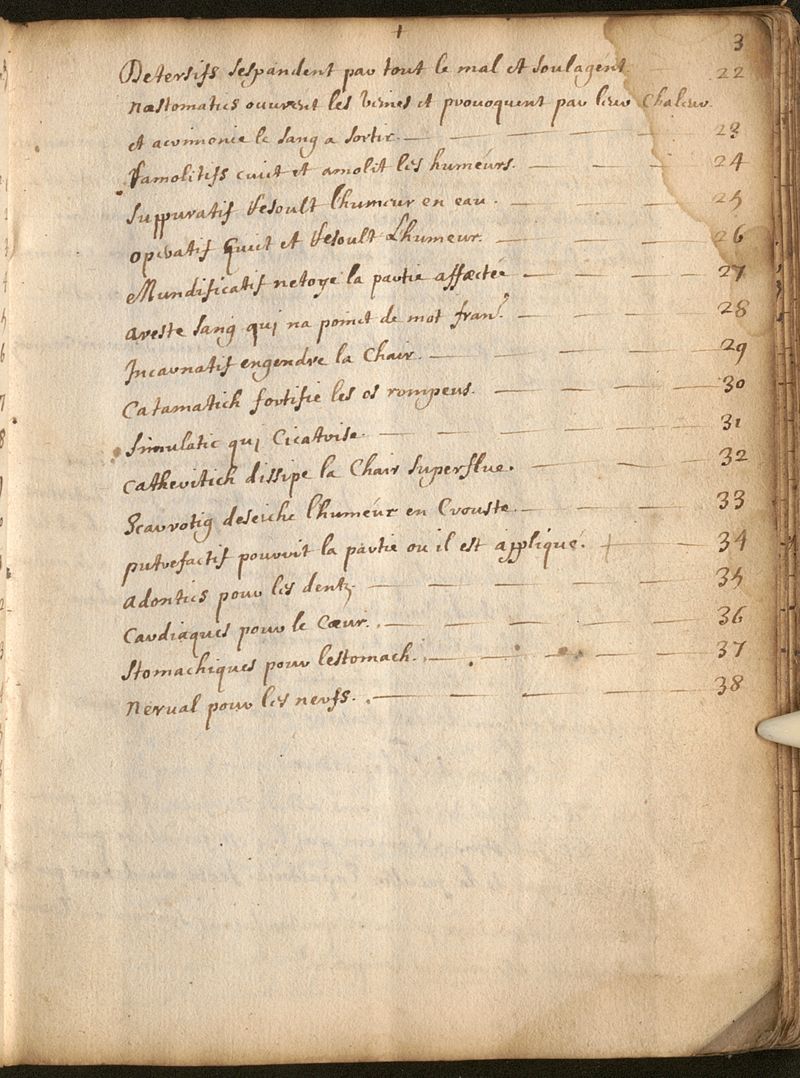 3
Detersifs sespandent par tout le mal et soulagent — 22
nastomatics ouvrent les veines et provoquent par leur chaleur
et acrimonie le sang a sortir. — 23
ramolitifs cuit et amolit les humeurs. — 24
suppuratif resoult lhumeur en eau. — 25
opilatif cuit et resoult Lhumeur. — 26
Mundificatif netoye la partie affectée — 27
areste sang qui na poinct de mot fran. — 28
Incarnatif engendre la chair. — 29
Catamatich fortifie les os rompeus. — 30
simulatic qui cicatrise. — 31
catheritich dissipe la chair superflue. — 32
Scarrotig deseiche lhumeur en crouste. — 33
putrefactif pourrit la partie ou il est appliqué. — 34
adontics pour les dentz. — 35
Cardiaques pour le cœur. — 36
Stomachiques pour lestomach. — 37
nerual pour les nerfs. — 38